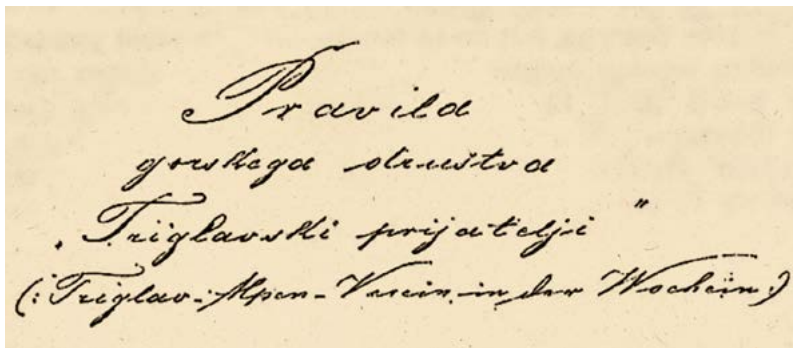 Pravila
gorskega društva
„Triglavski prijatelji"
(: Triglav-Alpen-Verein in der Wochein :)